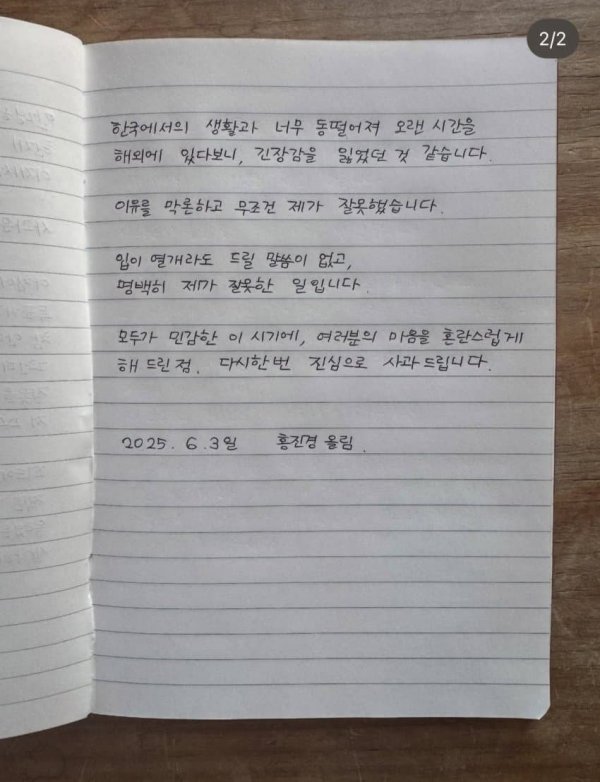 2/2
한국에서의 생활과 너무 동떨어져 오랜 시간을
해외에 있다보니, 긴장감을 잃었던 것 같습니다.
이유를 막론하고 무조건 제가 잘못했습니다.
입이 열개라도 드릴 말씀이 없고,
명백히 제가 잘못한 일입니다.
모두가 민감한 이 시기에, 여러분의 마음을 혼란스럽게
해 드린점. 다시한번 진심으로 사과드립니다.
2025. 6. 3일 홍진경 올림.